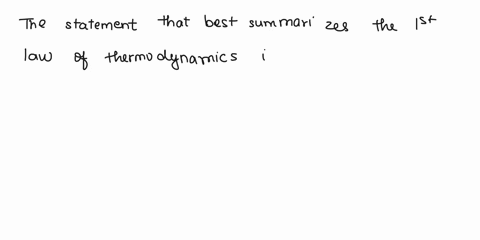 The statement that best summarizes the 1st
law of thermodynamics i